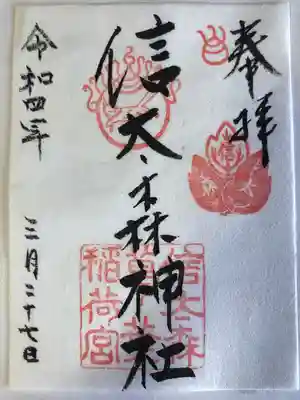 奉拝
信太森神社
令和四年 三月二十七日
信太森
葛葉
稲荷宮